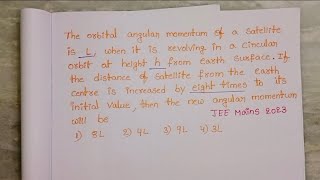 The orbital angular momentum of a satellite
is L, when it is revolving in a circular
orbit at height h from earth surface. If
the distance of satellite from the earth
centre is increased by eight times to its
initial value, then the new angular momentum
will be JEE Mains 2023
1) 8L 2) 4L 3) 9L 4) 3L